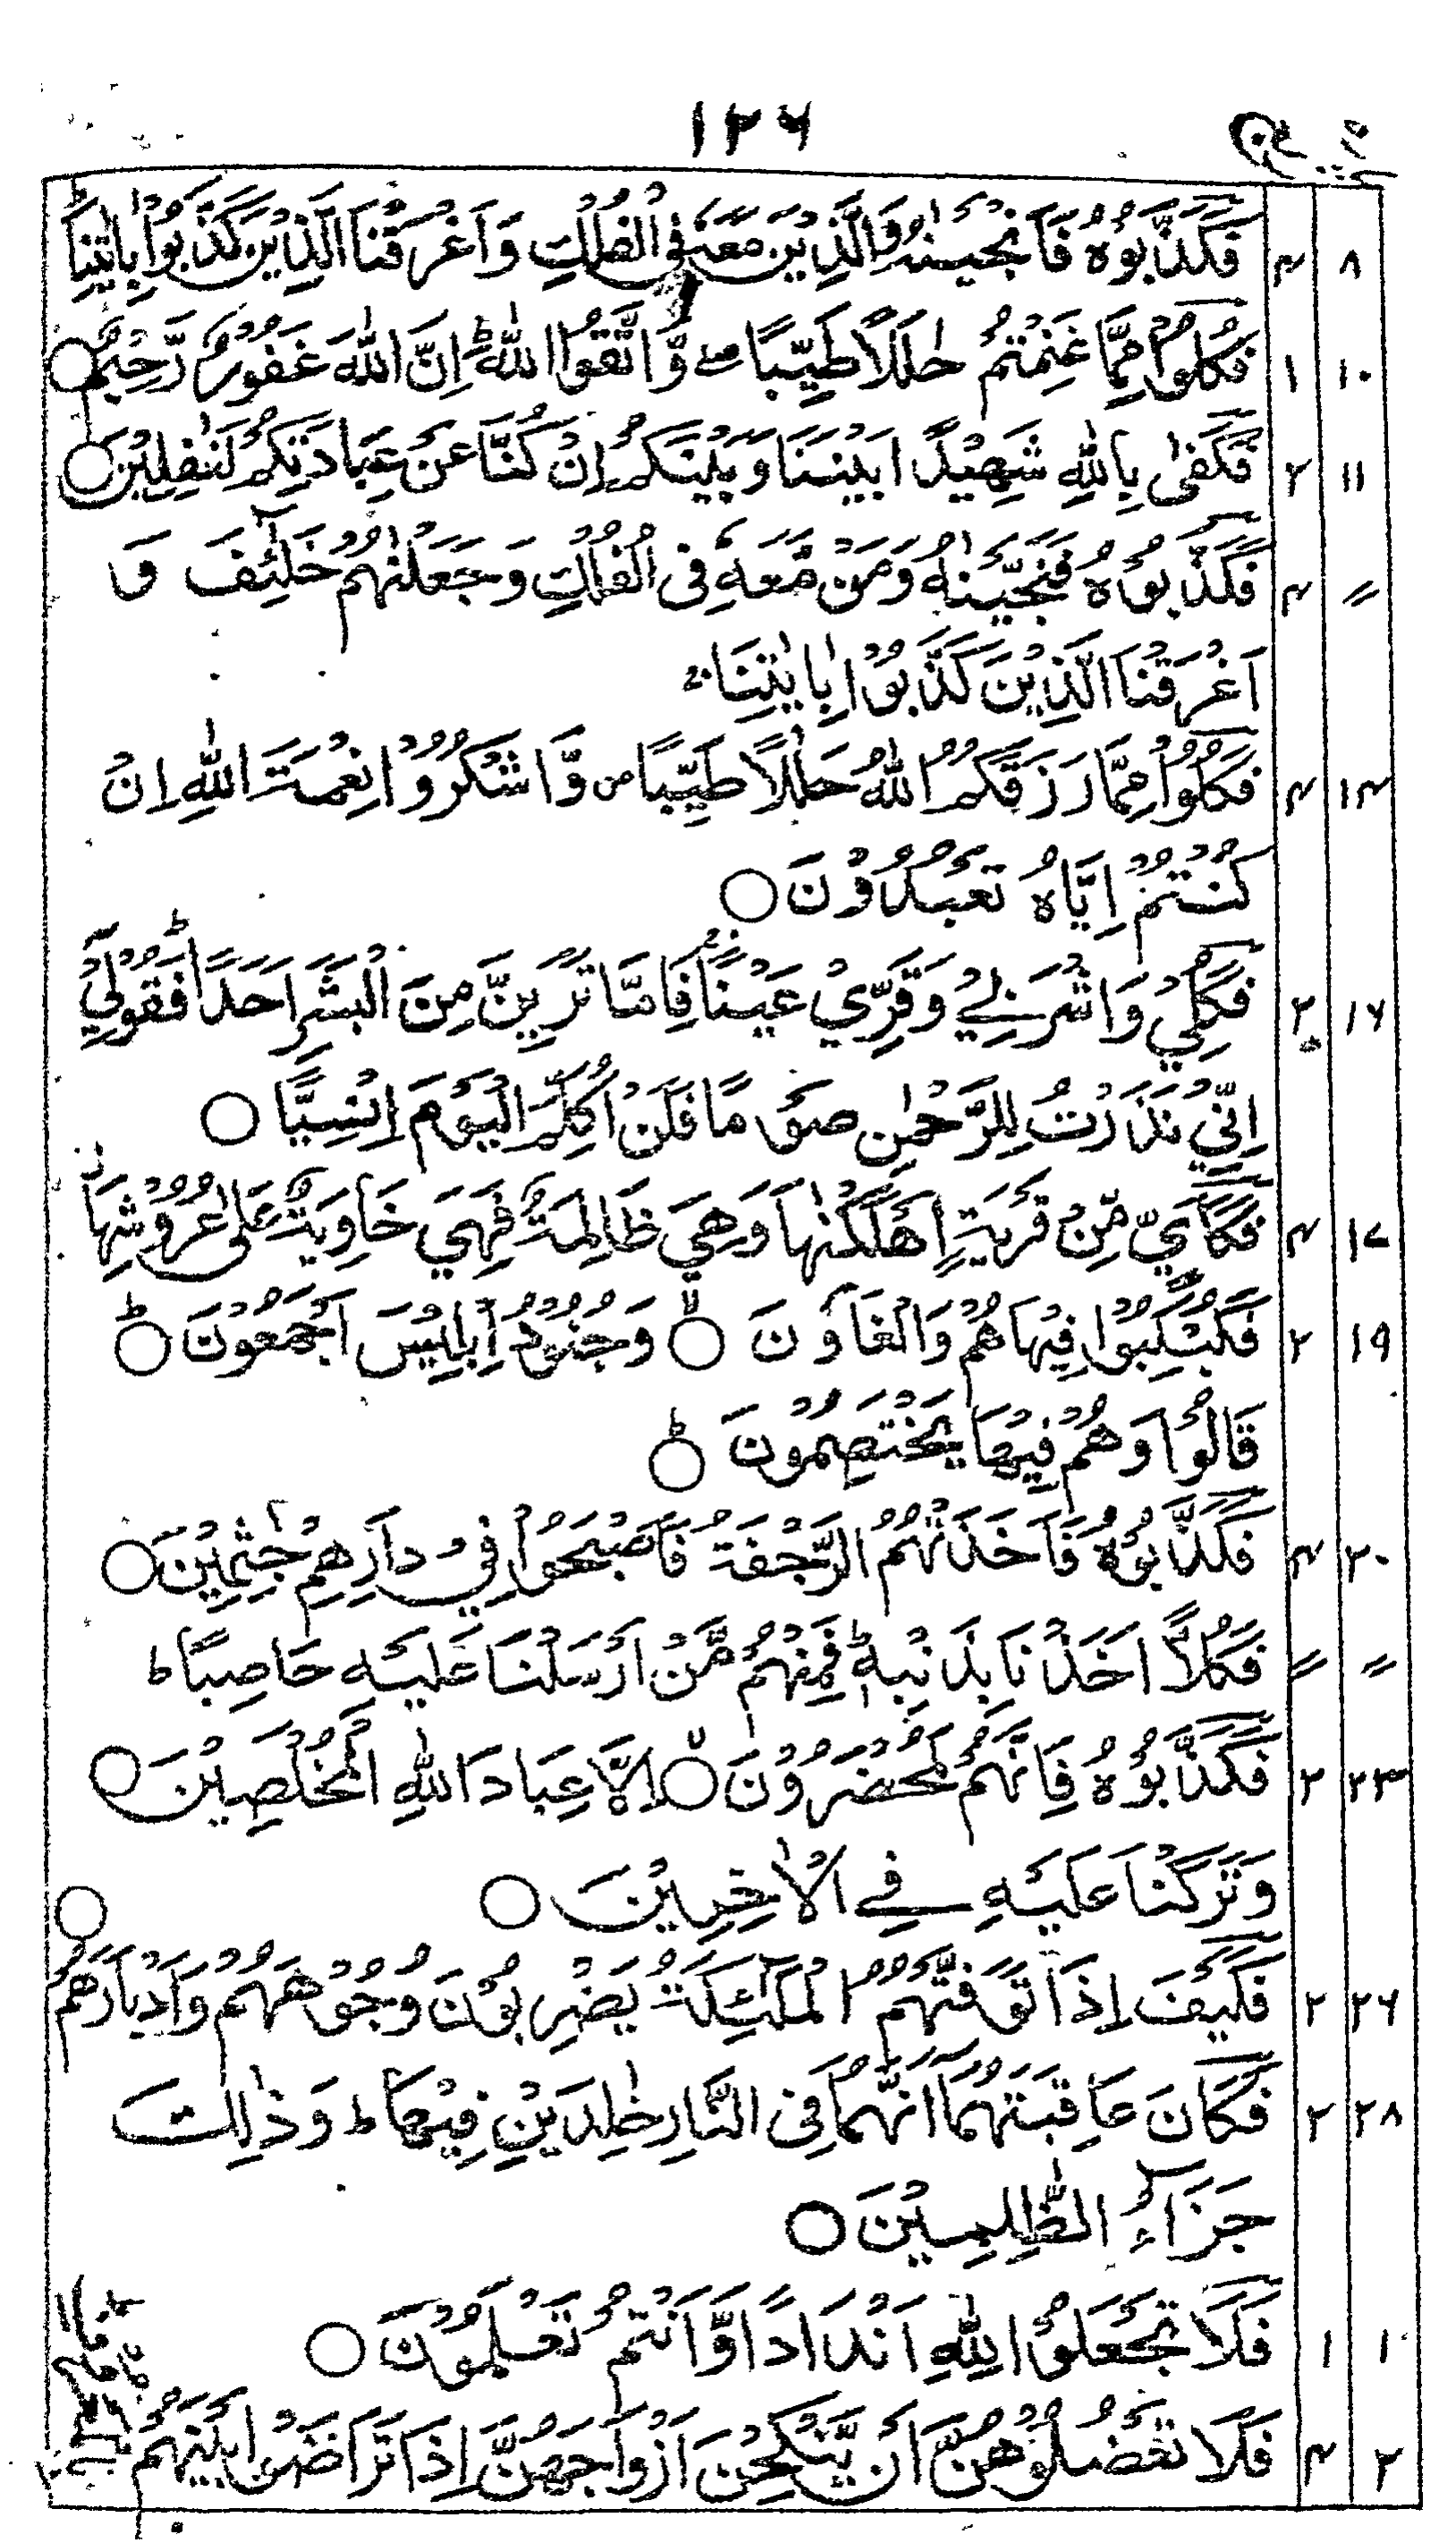 ١٢٦
٨ ٤ فَكَذَّبُوْهُ فَاَنْجَيْنٰهُ وَالَّذِيْنَ مَعَهٗ فِى الْفُلْكِ وَاَغْرَقْنَا الَّذِيْنَ كَذَّبُوْا بِاٰيٰتِنَا ؕ
١٠ ١ فَكُلُوْا مِمَّا غَنِمْتُمْ حٰلَلًا طَيِّبًا وَّاتَّقُوا اللّٰهَ ؕ اِنَّ اللّٰهَ غَفُوْرٌ رَّحِيْمٌ ○
١١ ٢ فَكَفٰى بِاللّٰهِ شَهِيْدًا بَيْنَنَا وَبَيْنَكُمْ اِنْ كُنَّا عَنْ عِبَادَتِكُمْ لَغٰفِلِيْنَ ○
〃 ٤ فَكَذَّبُوْهُ فَنَجَّيْنٰهُ وَمَنْ مَّعَهٗ فِى الْفُلْكِ وَجَعَلْنٰهُمْ خَلٰٓئِفَ وَ
اَغْرَقْنَا الَّذِيْنَ كَذَّبُوْا بِاٰيٰتِنَا ۚ
١٤ ٤ فَكُلُوْا مِمَّا رَزَقَكُمُ اللّٰهُ حَلٰلًا طَيِّبًا ص وَّاشْكُرُوْا نِعْمَتَ اللّٰهِ اِنْ
كُنْتُمْ اِيَّاهُ تَعْبُدُوْنَ ○
١٦ ٢ فَكُلِيْ وَاشْرَبِيْ وَقَرِّيْ عَيْنًا ۚ فَاِمَّا تَرَيِنَّ مِنَ الْبَشَرِ اَحَدًا ؕ فَقُوْلِيْٓ
اِنِّيْ نَذَرْتُ لِلرَّحْمٰنِ صَوْمًا فَلَنْ اُكَلِّمَ الْيَوْمَ اِنْسِيًّا ○
١٧ ٤ فَكَاَيِّنْ مِّنْ قَرْيَةٍ اَهْلَكْنٰهَا وَهِيَ ظَالِمَةٌ فَهِيَ خَاوِيَةٌ عَلٰى عُرُوْشِهَا
١٩ ٢ فَكُبْكِبُوْا فِيْهَا هُمْ وَالْغَاوٗنَ ○ وَجُنُوْدُ اِبْلِيْسَ اَجْمَعُوْنَ ○ؕ
قَالُوْا وَهُمْ فِيْهَا يَخْتَصِمُوْنَ ○ؕ
٢٠ ٤ فَكَذَّبُوْهُ فَاَخَذَتْهُمُ الرَّجْفَةُ فَاَصْبَحُوْا فِيْ دَارِهِمْ جٰثِمِيْنَ ○
〃 〃 فَكُلًّا اَخَذْنَا بِذَنْبِهٖ ۚ فَمِنْهُمْ مَّنْ اَرْسَلْنَا عَلَيْهِ حَاصِبًا ط
٢٣ ٢ فَكَذَّبُوْهُ فَاِنَّهُمْ لَمُحْضَرُوْنَ ○ اِلَّا عِبَادَ اللّٰهِ الْمُخْلَصِيْنَ ○
وَتَرَكْنَا عَلَيْهِ فِي الْاٰخِرِيْنَ ○
٢٦ ٢ فَكَيْفَ اِذَا تَوَفَّتْهُمُ الْمَلٰٓئِكَةُ يَضْرِبُوْنَ وُجُوْهَهُمْ وَاَدْبَارَهُمْ ○
٢٨ ٢ فَكَانَ عَاقِبَتَهُمَآ اَنَّهُمَا فِى النَّارِ خٰلِدَيْنِ فِيْهَا ط وَذٰلِكَ
جَزٰٓؤُا الظّٰلِمِيْنَ ○
١ ١ فَلَا تَجْعَلُوْا لِلّٰهِ اَنْدَادًا وَّاَنْتُمْ تَعْلَمُوْنَ ○
٢ ٤ فَلَا تَعْضُلُوْهُنَّ اَنْ يَّنْكِحْنَ اَزْوَاجَهُنَّ اِذَا تَرَاضَوْا بَيْنَهُمْ